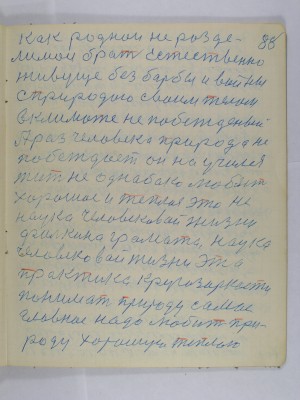 как родной не разде- 88
лимой брат Естественно
живуще без барбы и вайны
с природаю своим телом
в климоте не побежденый
А раз человека природа не
побеждает он на учился
жит не однабако любит
хорошое и теплая это не
наука человековай жизни
грамата, наука
человековай жизни Эта
практика кругазаркасти
понимат природу самае
главнае надо любит при-
роду хорошую теплою